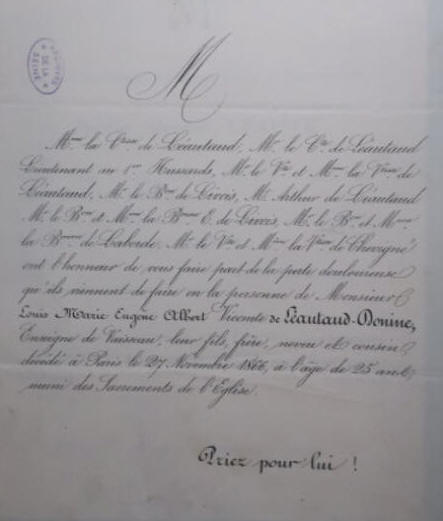 ARCHIVES DE LA SEINE
M
Mme. la Ctesse de Léautaud, Mr. le Cte de Léautaud
Lieutenant au 1er Hussards, Mr. le Vte et Mme la Vtesse de
Léautaud, Mr. le Bon de Livois, Mr. Arthur de Léautaud
Mr. le Bon et Mme la Bonne E. de Livois, Mr. le Bon et Mme
la Bonne de Laborde, Mr. le Vte et Mme la Vtesse de Chevigné
ont l'honneur de vous faire part de la perte douloureuse
qu'ils viennent de faire en la personne de Monsieur
Louis Marie Eugène Albert Vicomte de Léautaud-Donine,
Enseigne de Vaisseau, leur fils, frère, neveu et cousin
décédé à Paris le 27 Novembre 1866, à l'âge de 25 ans
muni des Sacrements de l'Eglise.
Priez pour lui !